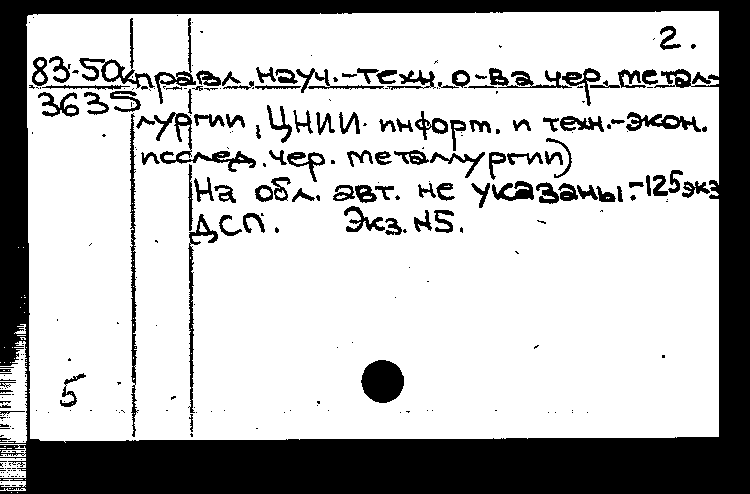 2.
83-50к правл. науч.-техн. о-ва чер. метал-
3635
лургии, ЦНИИ информ. и техн.-экон.
исслед. чер. металлургии)
На обл. авт. не указаны.-125экз
ДСП. Экз. №5.
5